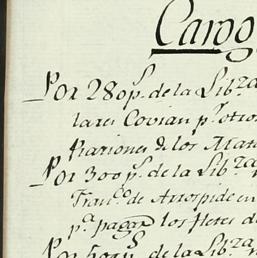 Cargo
Por 280 p.s de la Lib.za
lares Covian p.r otros
Raziones de los Mata
Por 300 p.s de la Lib.za
Fran.co de Arrospide en
p.a pagar los fletes de
Por 500 p.s de la Lib.za